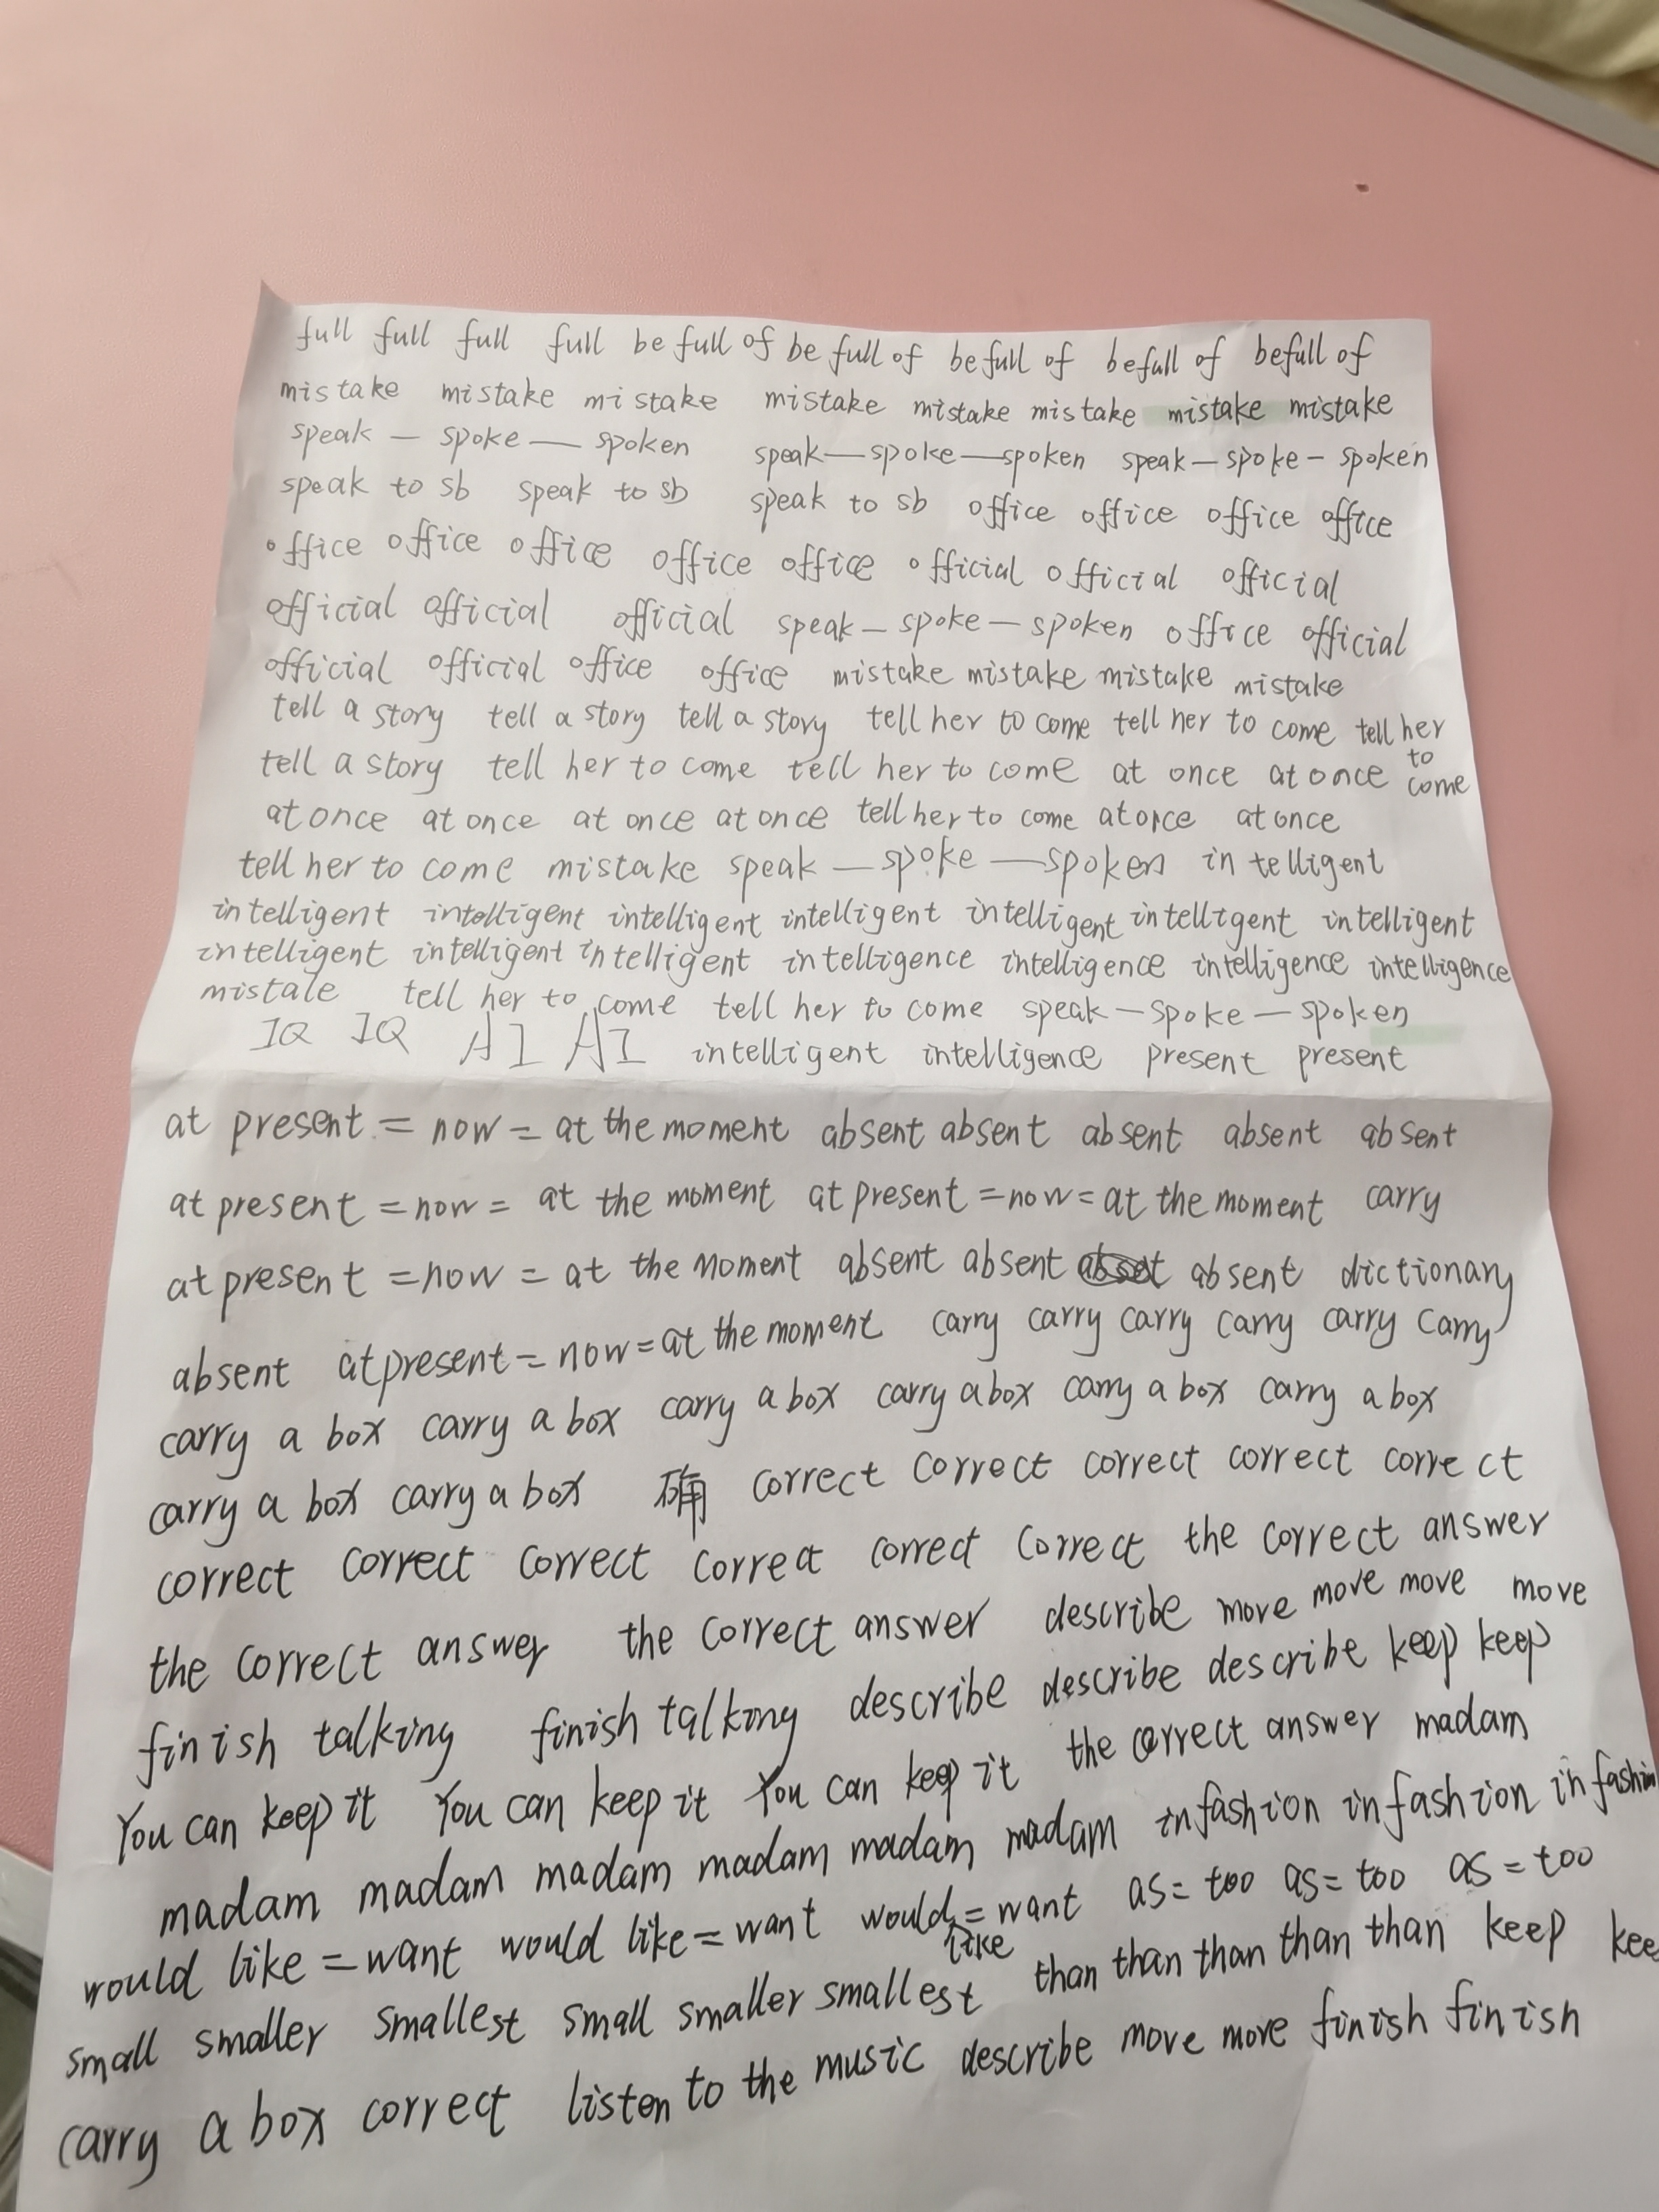 full full full full be full of be full of be full of be full of be full of
mistake mistake mistake mistake mistake mistake mistake mistake
speak — spoke — spoken speak — spoke — spoken speak — spoke - spoken
speak to sb speak to sb speak to sb office office office office
office office office office office official official official
official official official speak — spoke — spoken office official
official official office office mistake mistake mistake mistake
tell a story tell a story tell a story tell her to come tell her to come tell her to come
tell a story tell her to come tell her to come at once at once
at once at once at once at once tell her to come at once at once
tell her to come mistake speak — spoke — spoken intelligent
intelligent intelligent intelligent intelligent intelligent intelligent intelligent
intelligent intelligent intelligent intelligence intelligence intelligence intelligence
mistale tell her to come tell her to come speak — spoke — spoken
IQ IQ AI AI intelligent intelligence present present
at present = now = at the moment absent absent absent absent absent
at present = now = at the moment at present = now = at the moment carry
at present = now = at the moment absent absent absent dictionary
absent at present = now = at the moment carry carry carry carry carry carry
carry a box carry a box carry a box carry a box carry a box carry a box
carry a box carry a box 确 correct correct correct correct correct
correct correct correct correct correct correct the correct answer
the correct answer the correct answer describe move move move move
finish talking finish talking describe describe describe keep keep
You can keep it You can keep it You can keep it the correct answer madam
madam madam madam madam madam madam in fashion in fashion in fashion
would like = want would like = want would like = want as = too as = too as = too
small smaller smallest small smaller smallest than than than than than keep kee
carry a box correct listen to the music describe move move finish finish